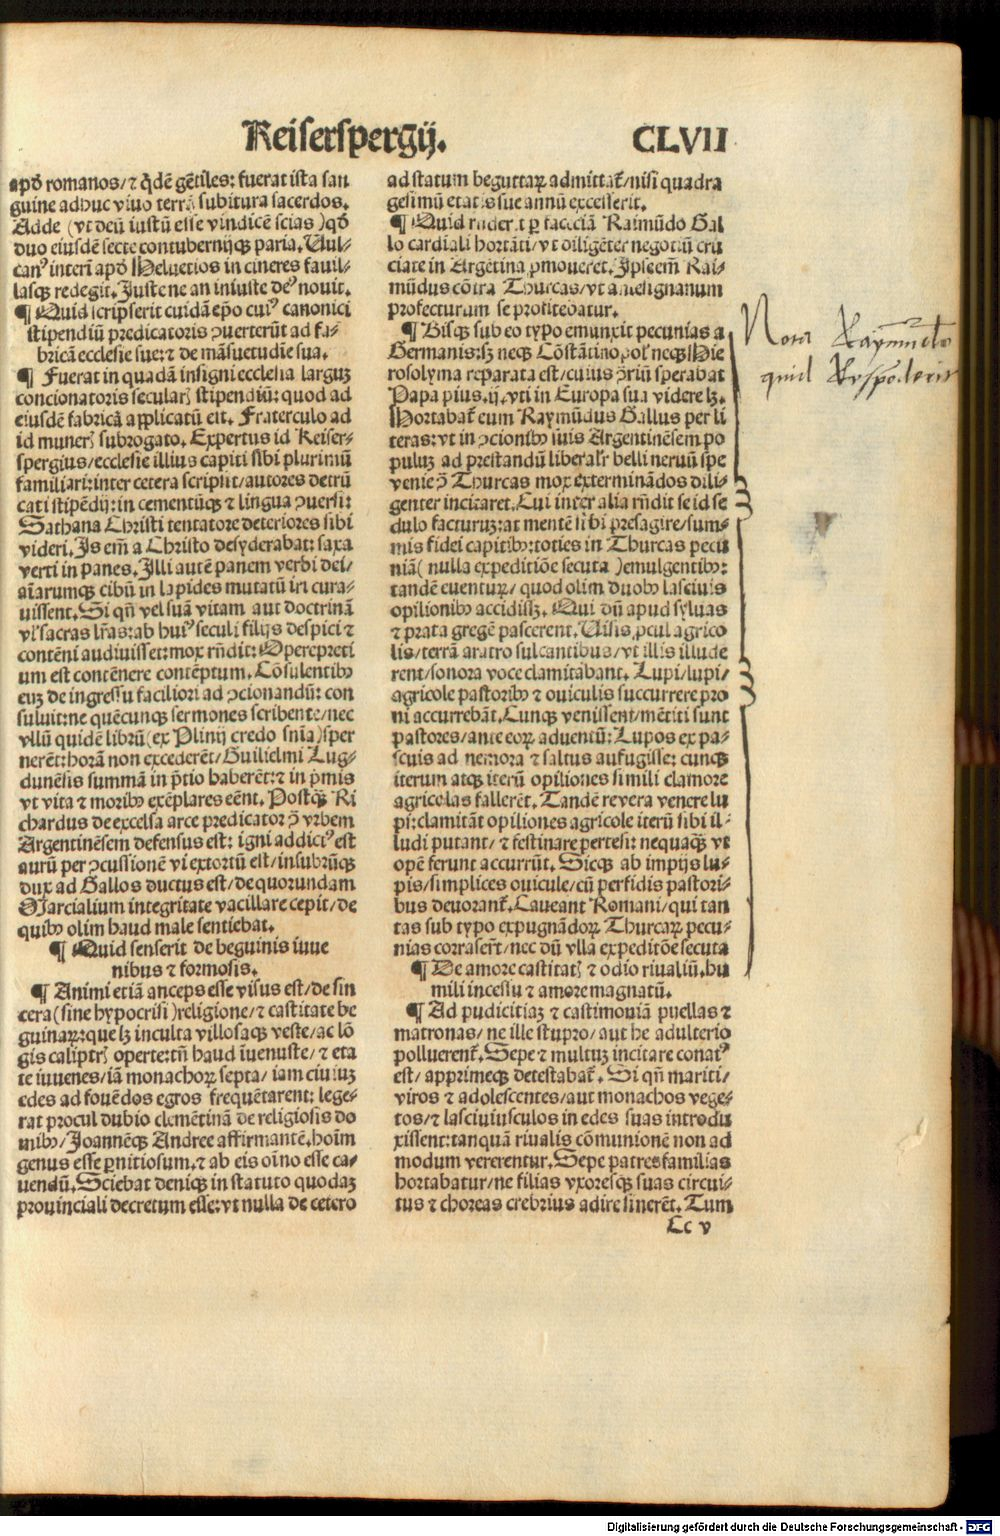 Keiserspergij.
CLVII
apđ romanos/⁊ q̄dẽ gẽtiles: fuerat ista san
guine adhuc viuo terrã subitura sacerdos.
Adde (vt deũ iustũ esse vindicẽ scias) qđ
duo eiusdẽ secte contubernijqꝫ paria. Uul⸗
canꝰ interĩ apđ Heluetios in cineres fauil⸗
lasqꝫ redegit. Juste ne an iniuste deꝰ nouit.
¶ Quid scripserit cuidã ep̃o cuiꝰ canonici
stipendiũ predicatoris ꝯuerterũt ad fa⸗
bricã ecclesie sue: ⁊ de mãsuetudĩe sua.
¶ Fuerat in quadã insigni ecclesia larguꝫ
concionatoris secularꝭ stipendiũ: quod ad
eiusdẽ fabricã applicatũ est. Fraterculo ad
id munerꝭ subrogato. Expertus id Keiser⸗
spergius/ecclesie illius capiti sibi plurimũ
familiari: inter cetera scripsit/autores detrũ
cati stipẽdij: in cementũqꝫ ⁊ lingua ꝯuersi:
Sathana Christi tentatore deteriores sibi
videri. Is em̃ a Christo desyderabat: saxa
verti in panes. Illi autẽ panem verbi dei/
aĩarumqꝫ cibũ in lapides mutatũ iri cura⸗
uissent. Si qñ vel suã vitam aut doctrinã
vl̓ sacras lr̃as: ab huiꝰ seculi filijs despici ⁊
contẽni audiuisset: mox rñdit: Operepreti
um est contẽnere contẽptum. Cõsulentibꝰ
euꝫ de ingressu faciliori ad ꝯcionandũ: con
suluit: ne quẽcunqꝫ sermones scribente/nec
vllũ quidẽ librũ (ex Plinij credo sñia) sper
nerẽt: horã non excederẽt/Guilielmi Lug⸗
dunẽsis summã in p̃tio haberẽt: ⁊ in p̃mis
vt vita ⁊ moribꝰ exẽplares eẽnt. Postqꝫ̃ Ri
chardus de excelsa arce predicator ꝓ vrbem
Argentinẽsem defensus est: igni addictꝰ est
aurũ per ꝯcussionẽ vi extortũ est/insubrũqꝫ
dux ad Gallos ductus est/de quorundam
Marcialium integritate vacillare cepit/de
quibꝰ olim haud male sentiebat.
¶ Quid senserit de beguinis iuue
nibus ⁊ formosis.
¶ Animi etiã anceps esse visus est/de sin
cera (sine hypocrisi) religione/⁊ castitate be
guinaꝝ: que lꝫ inculta villosaqꝫ veste/ac lõ
gis caliptrꝭ operte: tñ haud iuenuste/⁊ eta
te iuuenes/iã monachoꝝ septa/iam ciuiuꝫ
edes ad fouẽdos egros frequẽtarent: lege⸗
rat procul dubio clemẽtinã de religiosis do
mibꝰ/Joannẽqꝫ Andree affirmantẽ. hoĩm
genus esse ꝑnitiosum. ⁊ ab eis oĩno esse ca⸗
uendũ. Sciebat deniqꝫ in statuto quodaꝫ
prouinciali decretum esse: vt nulla de cetero
ad statum beguttaꝝ admittat̃/nisi quadra
gesimũ etatis sue annũ excesserit.
¶ Quid riderit ꝑ faceciã Raimũdo Gal
lo cardiali hortãti/vt diligẽter negotiũ cru
ciate in Argẽtina ꝓmoueret. Ipseem̃ Rai⸗
mũdus cõtra Thurcas/vt amelignanum
profecturum se profitebatur.
¶ Bisqꝫ sub eo typo emunxit pecunias a
Germanis: sꝫ neqꝫ Cõstãtinopol̓ neqꝫ Hie
rosolyma reparata est/cuius p̃riũ sperabat
Papa pius. ij. vti in Europa sua videre lꝫ.
Hortabat̃ eum Raymũdus Gallus per li
teras: vt in ꝯcionibꝰ suis Argentinẽsem po
puluꝫ ad prestandũ liberalr̃ belli neruũ spe
venie ꝓ Thurcas mox exterminãdos dili⸗
genter incitaret. Cui inter alia rñdit se id se
dulo facturuꝫ: at mentẽ sibi presagire/sum⸗
mis fidei capitibꝰ: toties in Thurcas pecu
niã (nulla expeditiõe secuta) emulgentibꝰ:
tandẽ euentuꝝ/quod olim duobꝰ lasciuis
opilionibꝰ accidisꝫ. Qui dũ apud syluas
⁊ prata gregẽ pascerent. Uisis ꝓcul agrico
lis/terrã aratro sulcantibus/vt illis illude
rent/sonora voce clamitabant. Lupi/lupi/
agricole pastoribꝰ ⁊ ouiculis succurrere pro
ni accurrebãt. Cunqꝫ venissent/mẽtiti sunt
pastores/ante eoꝝ aduentũ: Lupos ex pa⸗
scuis ad nemora ⁊ saltus aufugisse: cunqꝫ
iterum atqꝫ iterũ opiliones simili clamore
agricolas fallerẽt. Tandẽ revera venere lu
pi: clamitãt opiliones agricole iterũ sibi il⸗
ludi putant/⁊ festinare pertesi: nequaqꝫ̃ vt
opẽ ferunt accurrũt. Sicqꝫ ab impijs lu⸗
pis/simplices ouicule/cũ perfidis pastori⸗
bus deuorant̃. Caueant Romani/qui tan
tas sub typo expugnãdoꝝ Thurcaꝝ pecu⸗
nias corrasert̃/nec dũ vlla expeditõe secuta
¶ De amore castitatꝭ ⁊ odio riualiũ. hu
mili incessu ⁊ amore magnatũ.
¶ Ad pudicitiaꝫ ⁊ castimoniã puellas ⁊
matronas/ne ille stupro/aut he adulterio
polluerent̃. Sepe ⁊ multuꝫ incitare conatꝰ
est/apprimeqꝫ detestabat̃. Si qñ mariti/
viros ⁊ adolescentes/aut monachos vege⸗
tos/⁊ lasciuiusculos in edes suas introdu
xissent: tanquã riualis cõmunionẽ non ad
modum vererentur. Sepe patresfamilias
hortabatur/ne filias vxoresqꝫ suas circui⸗
tus ⁊ choreas crebrius adire sinerẽt. Tum
Cc v
Nota Raymundo
quid Respõderit
Digitalisierung gefördert durch die Deutsche Forschungsgemeinschaft - DFG